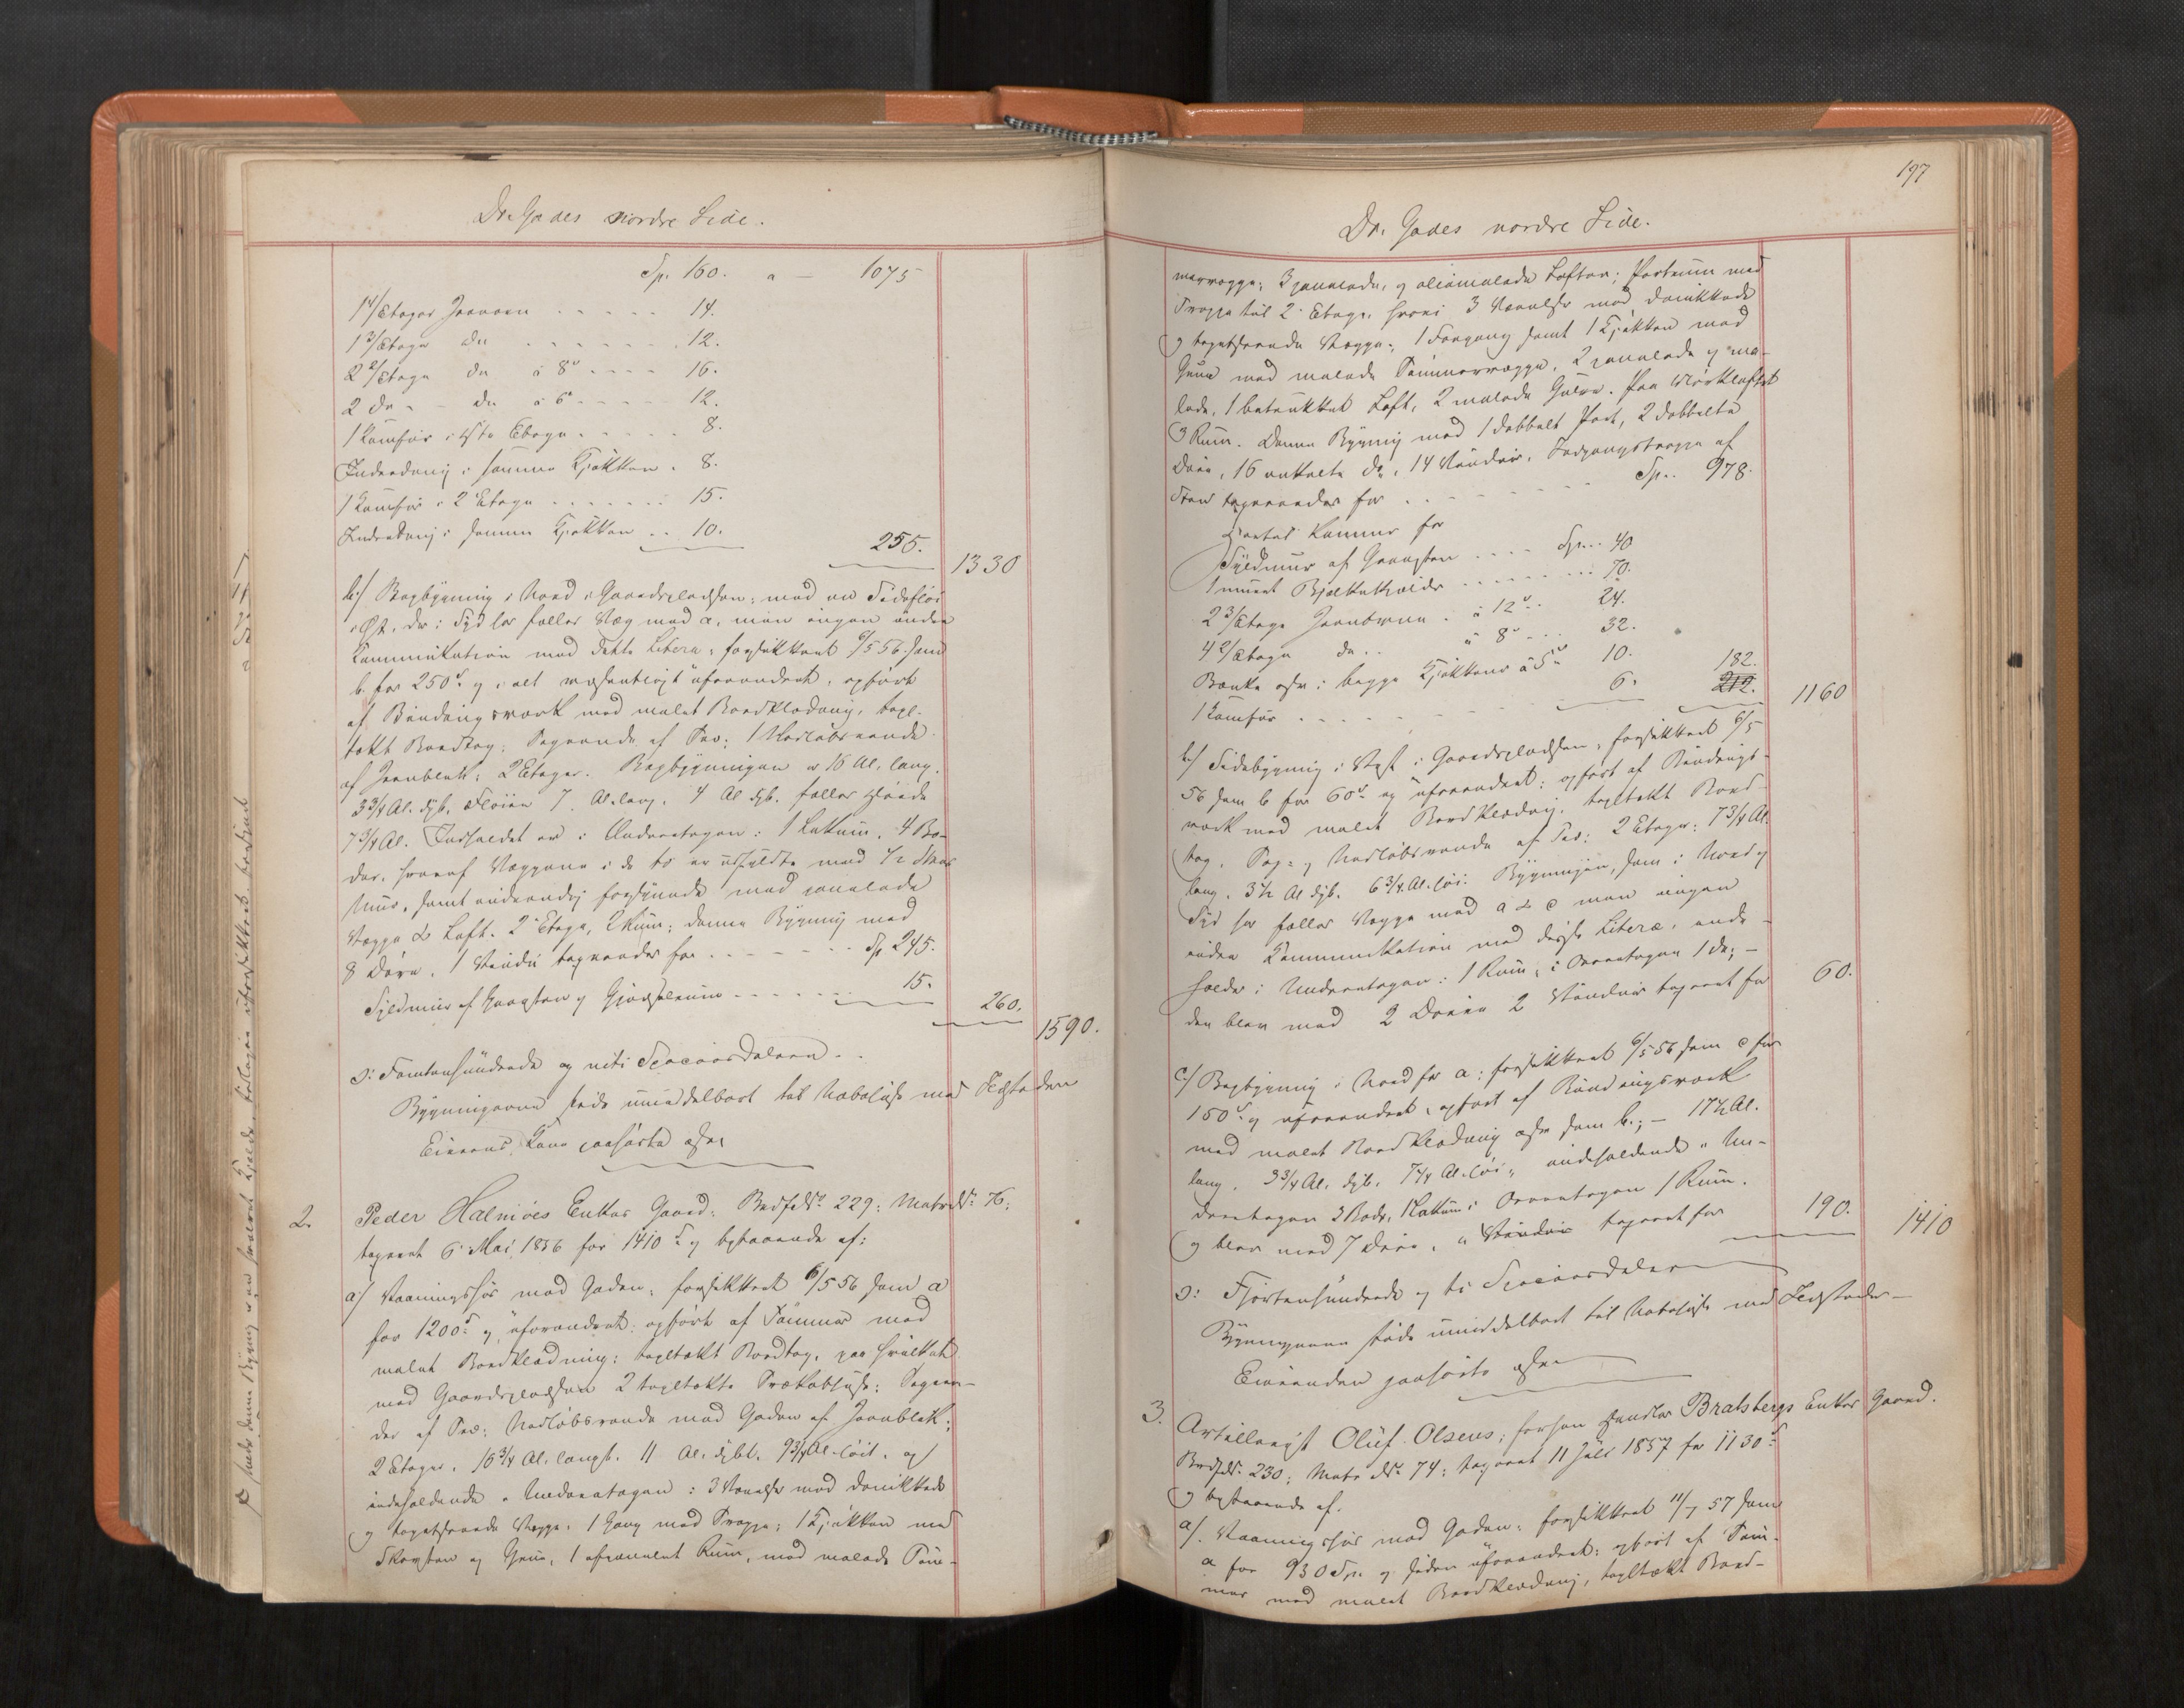 Dr. Gades nordre Side.
Sp. 160. a — 1075
1 4/Etages Jernovn . . . . . 14.
1 3/Etage do . . . . . . 12.
2 2/Etage do à 8 . . . . 16.
2 do - do à 6 . . . . . 12.
1 Komfür i 1ste Etage . . . . . 8.
Indredning i samme Kjøkken . 8.
1 Komfür i 2 Etage . . . . . . . 15.
Indredning i samme Kjøkken . . 10.
255. 1330
b./ Bagbygning i Nord i Gaardspladsen; med en Sidefløi
i Øst, der i Syd har fælles Væg med a, men ingen anden
Kommunikation med dette Litera; forsikkret 6/5 56 som
b. for 250 og i alt væsentligt uforandret, opført
af Bindingsværk med malet Bordklædning, tegl-
tækt Bordtag; Tagrende af Træ; 1 Nedløbsrende
af Jernblik; 2 Etager. Bagbygningen er 16 Al. lang.
3 3/4 Al. dyb. Fløien 7 Al. lang. 4 Al dyb. fælles Høide
7 3/4 Al. Indholdet er i Underetagen: 1 Lokum, 4 Bo-
der, hvoraf Væggene i de to er udfyldte med 1/2 Stens
Muur, samt indvendig forsynede med panelede
Vægge & Loft. 2 Etage, 2 Rum; denne Bygning med
8 Døre, 1 Vindu taxeredes for . . . . . . . Sp 245.
Syldmuur af Graasten og . . . . . . 15.
260.
1590.
ɔ: Femtenhundrede og niti Speciesdalere . .
Bygningerne støde umiddelbart til Nabohuse med Ildsteder
Eierens Kone paahørte Forr.
2. Peder Halmøes Enkes Gaard: Brdfds. 229; Matr. No 76;
taxeret 6 Mai 1856 for 1410 og bestaaende af:
a:/ Vaaningshus mod Gaden; forsikkret 6/5 56 som a
for 1200 og uforandret; opført af Tømmer med
malet Bordklædning; tegltækt Bordtag, paa hvilket
mod Gaardspladsen 2 tegltækte Trækobhuse; Tagren-
der af Træ; Nedløbsrende mod Gaden af Jernblik;
2 Etager. 16 3/4 Al. langt. 11 Al. dybt. 9 3/4 Al. høit. og
indeholdende i Underetagen: 3 Værelser med donikkede
og betrukne Vægge. 1 Gang med Trappe; 1 Kjøkken med
Skorsten og Gruve, 1 afpanelet Rum, med malede Tøm-
197
Dr. Gades nordre Side.
mervægge; 3 panelede, og oliemalede Lofter; Portrum med
Trappe til 2 Etage, hvori 3 Værelser med donikkede
og betrukne Vægge; 1 Forgang samt 1 Kjøkken med
Gruve med malede Tømmervægge, 2 panelede og ma-
lede, 1 betrukket Loft, 2 malede Gulve. Paa Mørkloftet
3 Rum. Denne Bygning med 1 dobbelt Port, 2 dobbelte
Døre, 16 enkelte do, 14 Vinduer, Indgangstrappe af
Sten taxeredes for . . . . . . . . Sp. 978.
Særskilt kommer for
Syldmuur af Graasten . . . . Sp. . 40
1 muret Bjælkekjelder . . . . . . . . 70.
2 3/Etage Jernovne . à 12 . . 24.
4 2/Etage do . . à 8 . . . 32.
Bænke osv i begge Kjøkkener à 5 10. 182.
1 Komfür . . . . . 6. 212. 1160
b./ Sidebygning i Vest i Gaardspladsen, forsikkret 6/5
56 som b for 60 og uforandret; opført af Bindings-
værk med malet Bordklædning, tegltækt Bord-
tag, Tag- og Nedløbsrende af Træ; 2 Etager; 7 3/4 Al.
lang. 3 1/2 Al dyb. 6 3/4. Al. høi. Bygningen, som i Nord og
Syd har fælles Vægge med a & c men ingen
anden Kommunikation med disse Literæ, inde-
holder i Underetagen: 1 Rum, i Overetagen 1 do; —
den blev med 2 Døre 2 Vinduer taxeret for 60.
c./ Bagbygning i Nord for a; forsikkret 6/5 56 som c for
150 og uforandret, opført af Bindingsværk
med malet Bordklædning osv som b.; — 17 1/2 Al.
lang. 3 3/4 Al. dyb. 7 1/4 Al. høi, indeholdende i Un-
deretagen 3 Bode, 1 Lokum i Overetagen 1 Rum.
og blev med 7 Døre, " Vinduer taxeret for 190.
1410
ɔ: Fjortenhundrede og ti Speciesdaler
Bygningerne støde umiddelbart til Nabohuse med Ildsteder —
Eierinden paahørte Forr.
3. Artillerist Oluf Olsens; forhen Handler Bratsbergs Enkes Gaard.
Brdfds. 230; Matr. No 74; taxeret 11 Juli 1857 for 1130
og bestaaende af.
a/. Vaaningshus mod Gaden; forsikkret 11/7 57 som
a for 930 Sp. og siden uforandret; opført af Tøm-
mer med malet Bordklædning, tegltækt Bord-